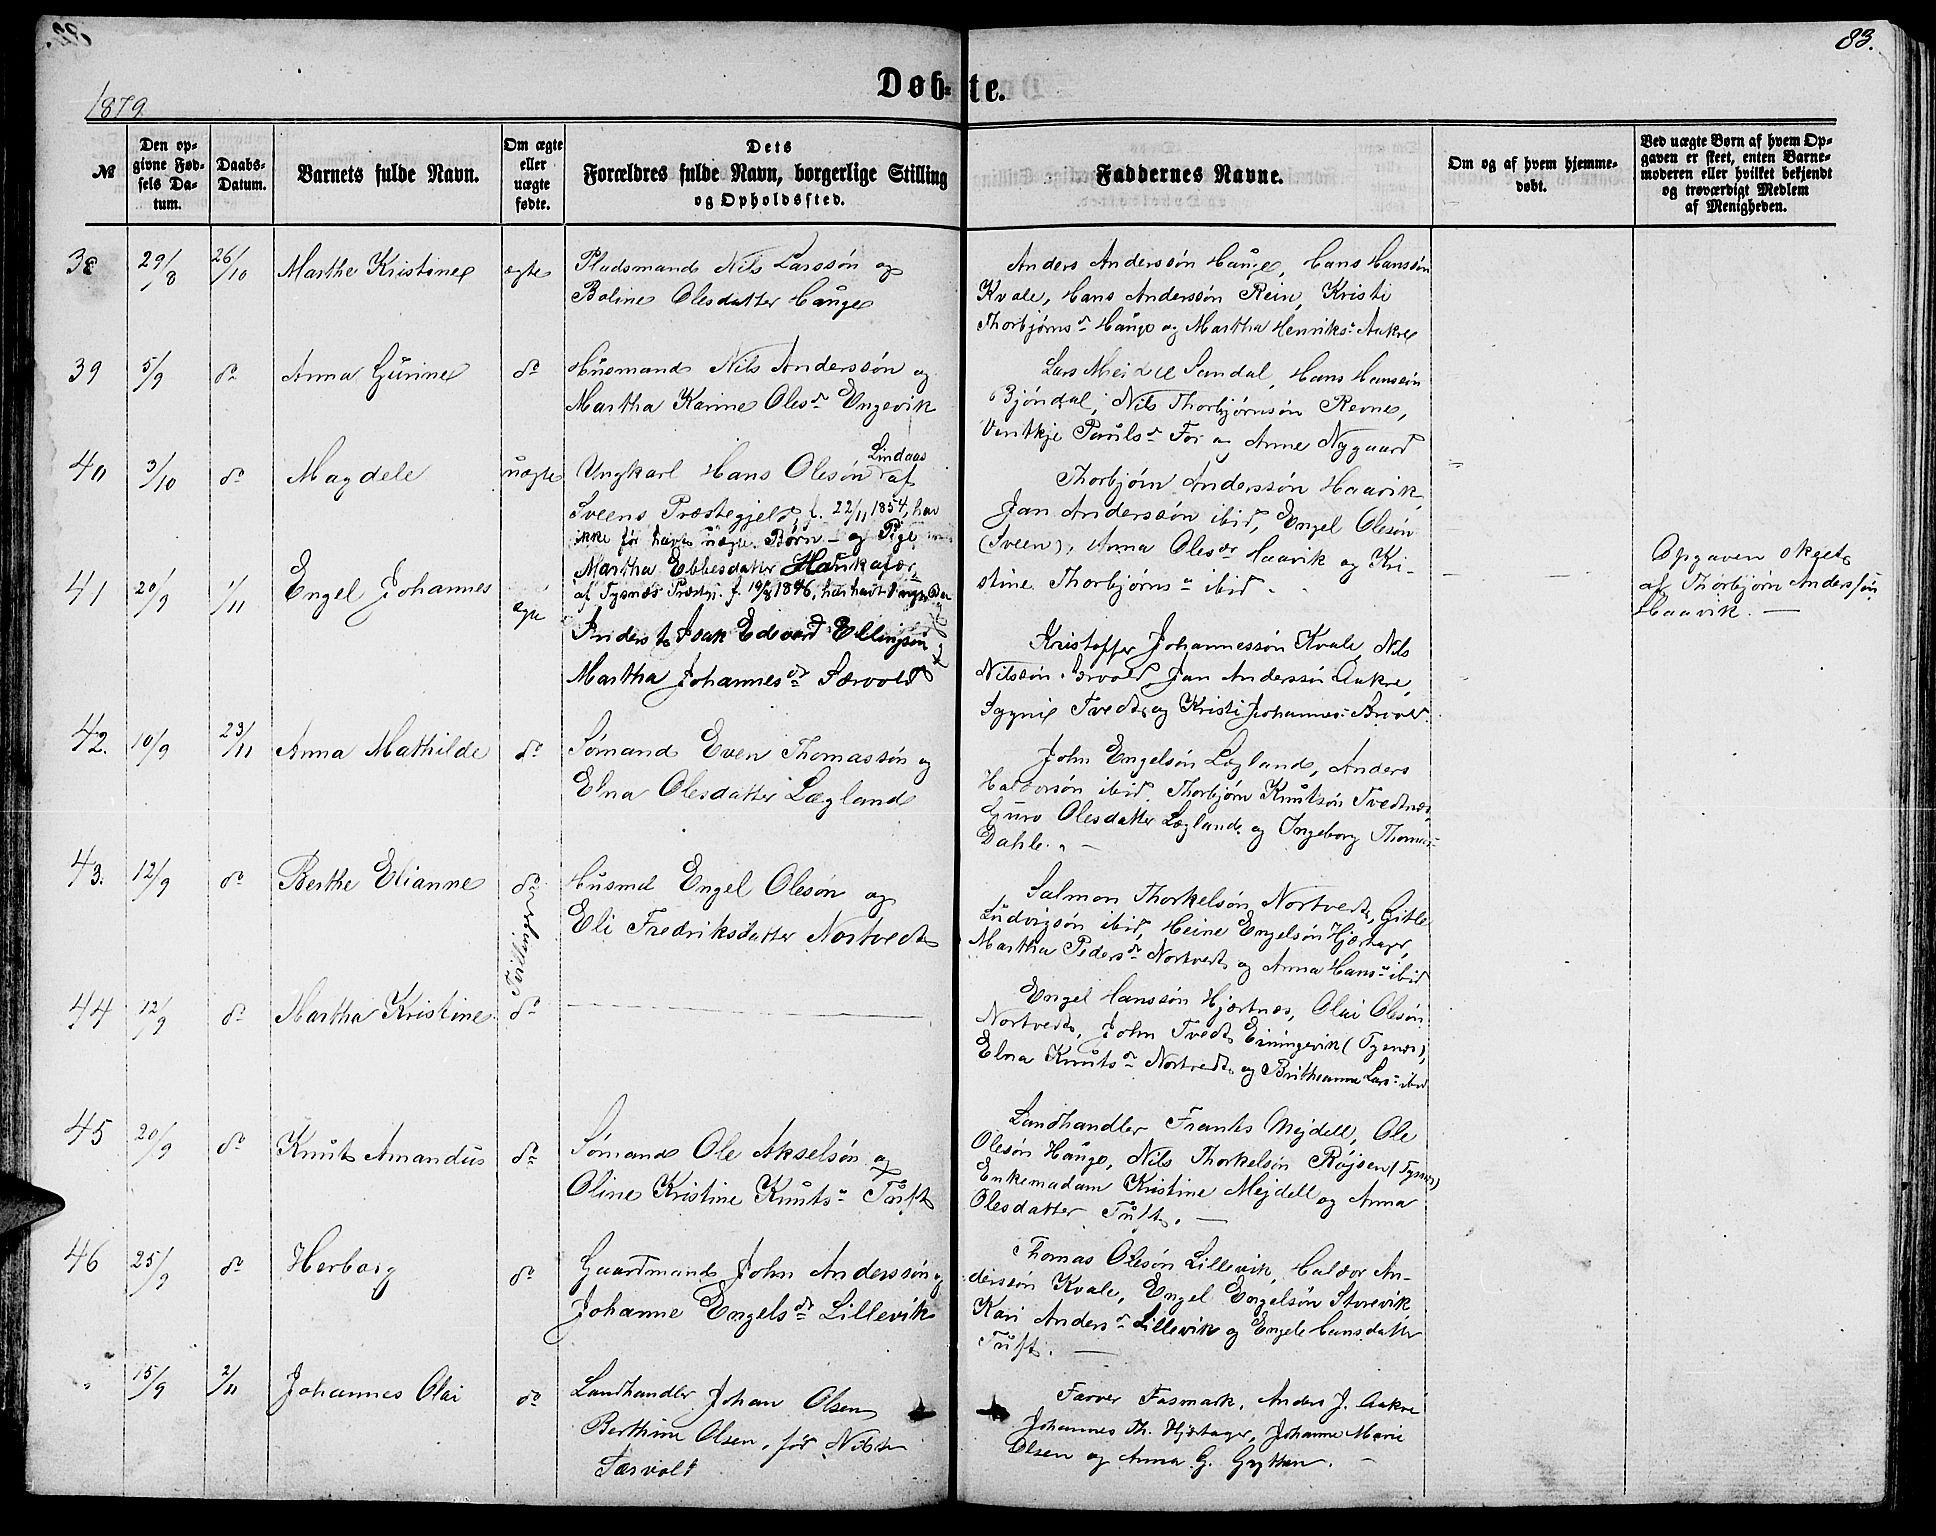 83.
1879.
Døbte.
№
Den opgivne Fødsels Datum.
Daabs-Datum.
Barnets fulde Navn.
Om ægte eller uægte fødte.
Dets Forældres fulde Navn, borgerlige Stilling og Opholdssted.
Faddernes Navne.
Om og af hvem hjemmedøbt.
Ved uægte Børn af hvem Opgaven er skeet, enten Barnemoderen eller hvilket bekjendt og troværdigt Medlem af Menigheden.
38 29/8 26/10 Marthe Kristine ægte
Pladsmand Nils Larssøn og
Boline Olesdatter Hauge
Anders Anderssøn Hauge, Hans Hanssøn
Kvale, Hans Anderssøn Rein, Kristi
Thorbjørnsdr Hauge og Martha Henriksdr Aakre
39 5/9 do Anna Gurine do
Husmand Nils Anderssøn og
Martha Karine Olesdr Engevik
Lars Sandal, Hans Hanssøn
Bjøndal, Nils Thorbjørnsøn Revne,
Ventkje Paulsdr For og Anne Nygaard
40 3/10 do Magdele uægte
Ungkarl Hans Olesøn Lindaas af
Sveens Præstegjeld, f. 22/11 1854, har
ikke før havt uægte Børn – og Pige
Martha Ebbesdatter
af Tysnæs Præstgj. f. 1846, har havt 1 uægte
Thorbjørn Anderssøn Haavik,
Jan Anderssøn ibid, Engel Olesøn
(Sveen), Anna Olesdr Haavik og Kri-
stine Thorbjørnsdr ibid.
Opgaven skeet
af Thorbjørn Anderssøn
Haavik. —
41 20/9 1/11 Engel Johannes ægte
Isak Edvard Ellingsøn
Martha Johannesdr Særvold
Kristoffer Johannessøn Kvale, Nils
Nilssøn Særvold, Jan Anderssøn Aakre,
Sygni Tvedt og Kristi Johannesdr
42. 10/9 23/11 Anna Mathilde do
Sømand Even Thomassøn og
Elna Olesdatter Lægland
John Engelsøn Lægland, Anders
Haldorsøn ibid. Thorbjørn Knutsøn Tvedtnæs,
Guro Olesdatter Lægland og Ingeborg Thomasdr
Dahle. —
43. 12/9 do Berthe Elianne do
Tvillinger
Husmd Engel Olesøn og
Eli Fredriksdatter Nortvedt
Salmon Thorkelsøn Nortvedt, Gitle
Ludvigsøn ibid, Heine Engelsøn Hjærtager,
Martha Pedersdr Nortvedt og Anna Hansdr ibid
44 12/9 do Martha Kristine do
Engel Hanssøn Hjærtnes, Olai Olesøn
Nortvedt, John Tvedt Einingevik (Tysnæs),
Elna Knutsdr Nortvedt og Britheanna Larsdr ibid
45 20/9 do Knut Amandus do
Sømand Ole Akselsøn og
Oline Kristine Knutsdr Tuft
Landhandler Frants Mejdell, Ole
Olesøn Hauge, Nils Thorkelsøn Røjsen (Tysnæs)
Enkemadam Kristine Mejdell og Anna
Olesdatter Tuft. —
46 25/9 do Herborg do
Gaardmand John Anderssøn og
Johanne Engelsdr Lillevik
Thomas Olesøn Lillevik, Haldor An-
derssøn Kvale, Engel Engelsøn Storevik,
Kari Andersdr Lillevik og Engele Hansdatter
Tuft. —
15/9 2/11 Johannes Olai do
Landhandler Johan Olsen
Berthine Olsen, før Nilsdr
Særvolt
Farver Fasmark, Anders J. Aakre
Johannes Th. Hjørtager, Johanne Marie
Olsen og Anna G. Grytten. —